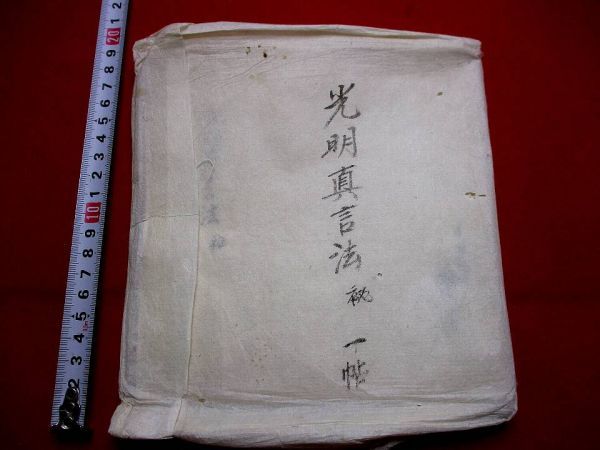 光明真言法 秘 一帖